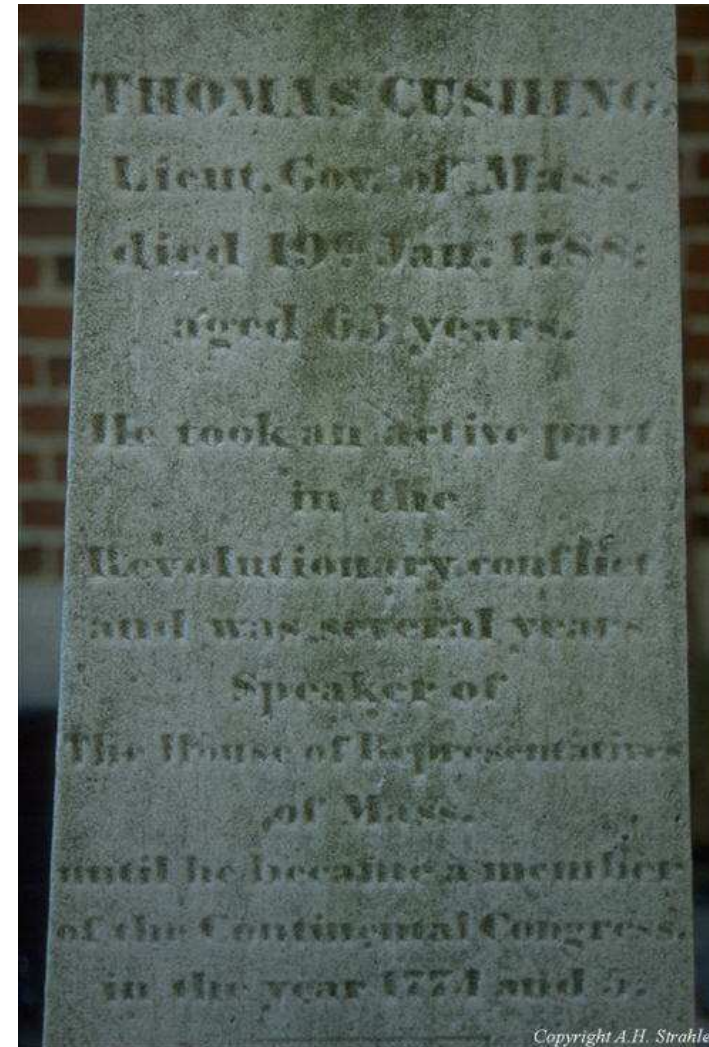 THOMAS CUSHING,
Lieut. Gov. of Mass.
died 19th Jan: 1788:
aged 63 years.
He took an active part
in the
Revolutionary conflict
and was several years
Speaker of
The House of Representatives
of Mass.
until he became a member
of the Continental Congress,
in the year 1774 and 5.
Copyright A.H. Strahle